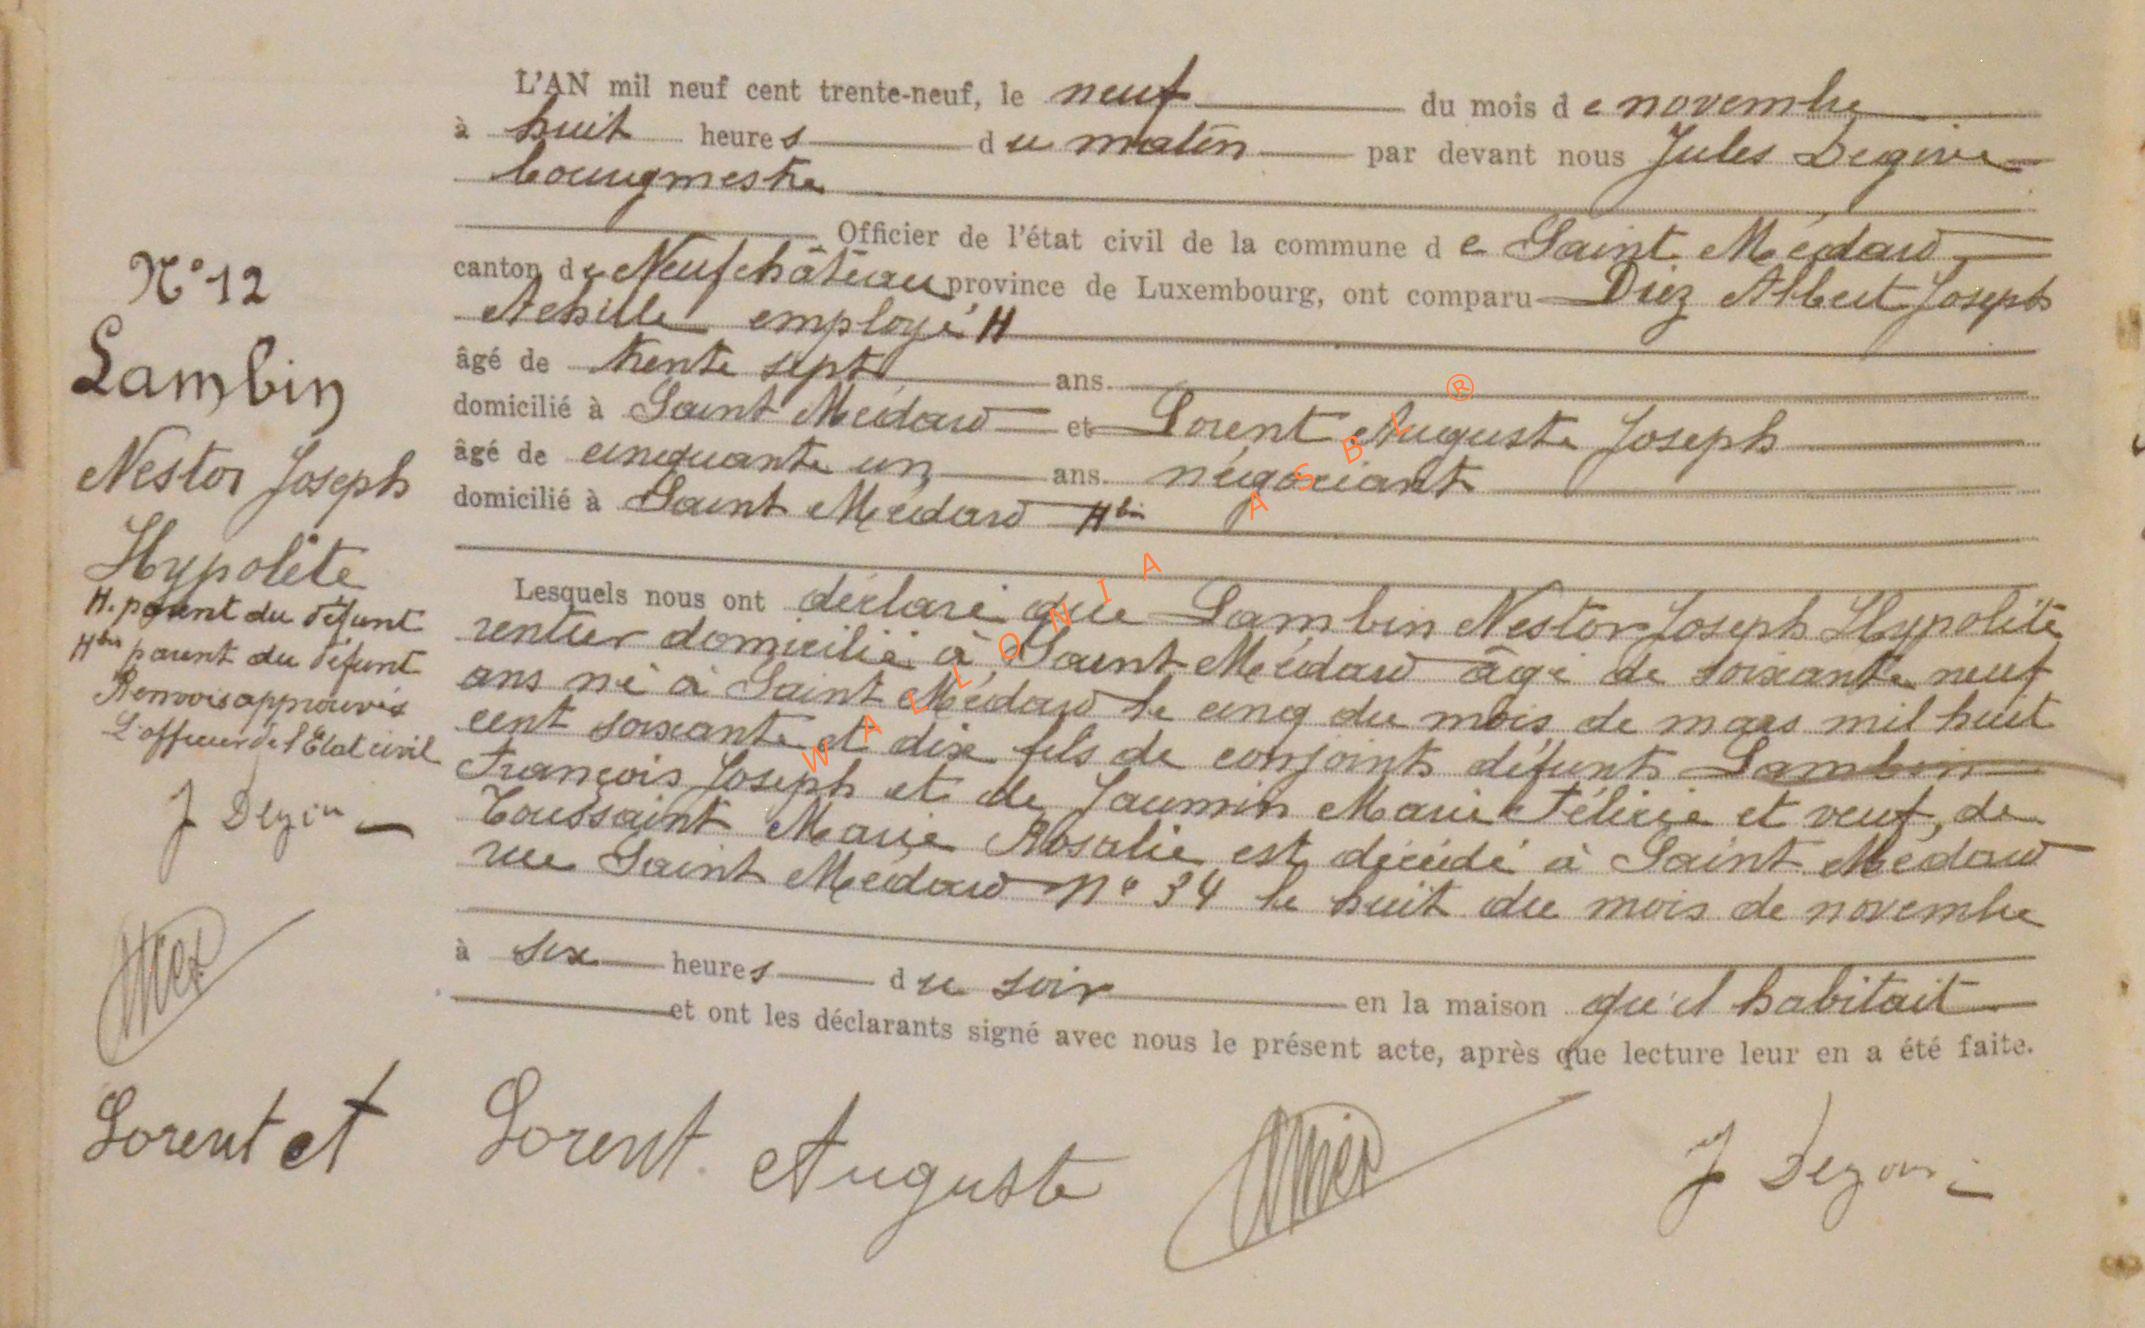 L'AN mil neuf cent trente-neuf, le neuf du mois de novembre
à huit heures du matin par devant nous Jules Degive
bourgmestre
Officier de l'état civil de la commune de Saint Médard
canton de Neufchâteau province de Luxembourg, ont comparu Diez Albert Joseph
Achille employé H
âgé de trente sept ans.
domicilié à Saint Médard et Lorent Auguste Joseph
âgé de cinquante un ans. négociant
domicilié à Saint Médard Hbis
Lesquels nous ont déclaré que Lambin Nestor Joseph Hypolite
rentier domicilié à Saint Médard âgé de soixante neuf
ans né à Saint Médard le cinq du mois de mars mil huit
cent soixante et dix fils de conjoints défunts Lambin
François Joseph et de Jaumin Marie Félicie et veuf de
Toussaint Marie Rosalie est décédé à Saint Médard
rue Saint Médard N° 34 le huit du mois de novembre
à six heures du soir en la maison qu'il habitait
et ont les déclarants signé avec nous le présent acte, après que lecture leur en a été faite.
N° 12
Lambin
Nestor Joseph
Hypolite
H. parent du défunt
Hbis parent du défunt
Renvois approuvés
L'officier de l'Etat civil
J Degive
Lorent A
Lorent Auguste
J Degive
WALLONIA ASBL ®